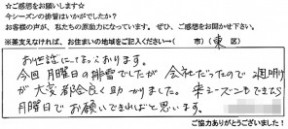 ☆ご感想をお願いします☆
今シーズンの排雪はいかがでしたか?
お客様の声が、私たちの原動力になっています。ぜひ、ご感想をお聞かせ下さい。
※差支えなければ、お住まいの地域をご記入ください→( 市)( 東 区)
お世話になっております。
今回月曜日の排雪でしたが会社だったので週明け
が大変都合良く助かりました。来シーズンもできたら
月曜日でお願いできればと思います。
ご協力ありがとうございました!